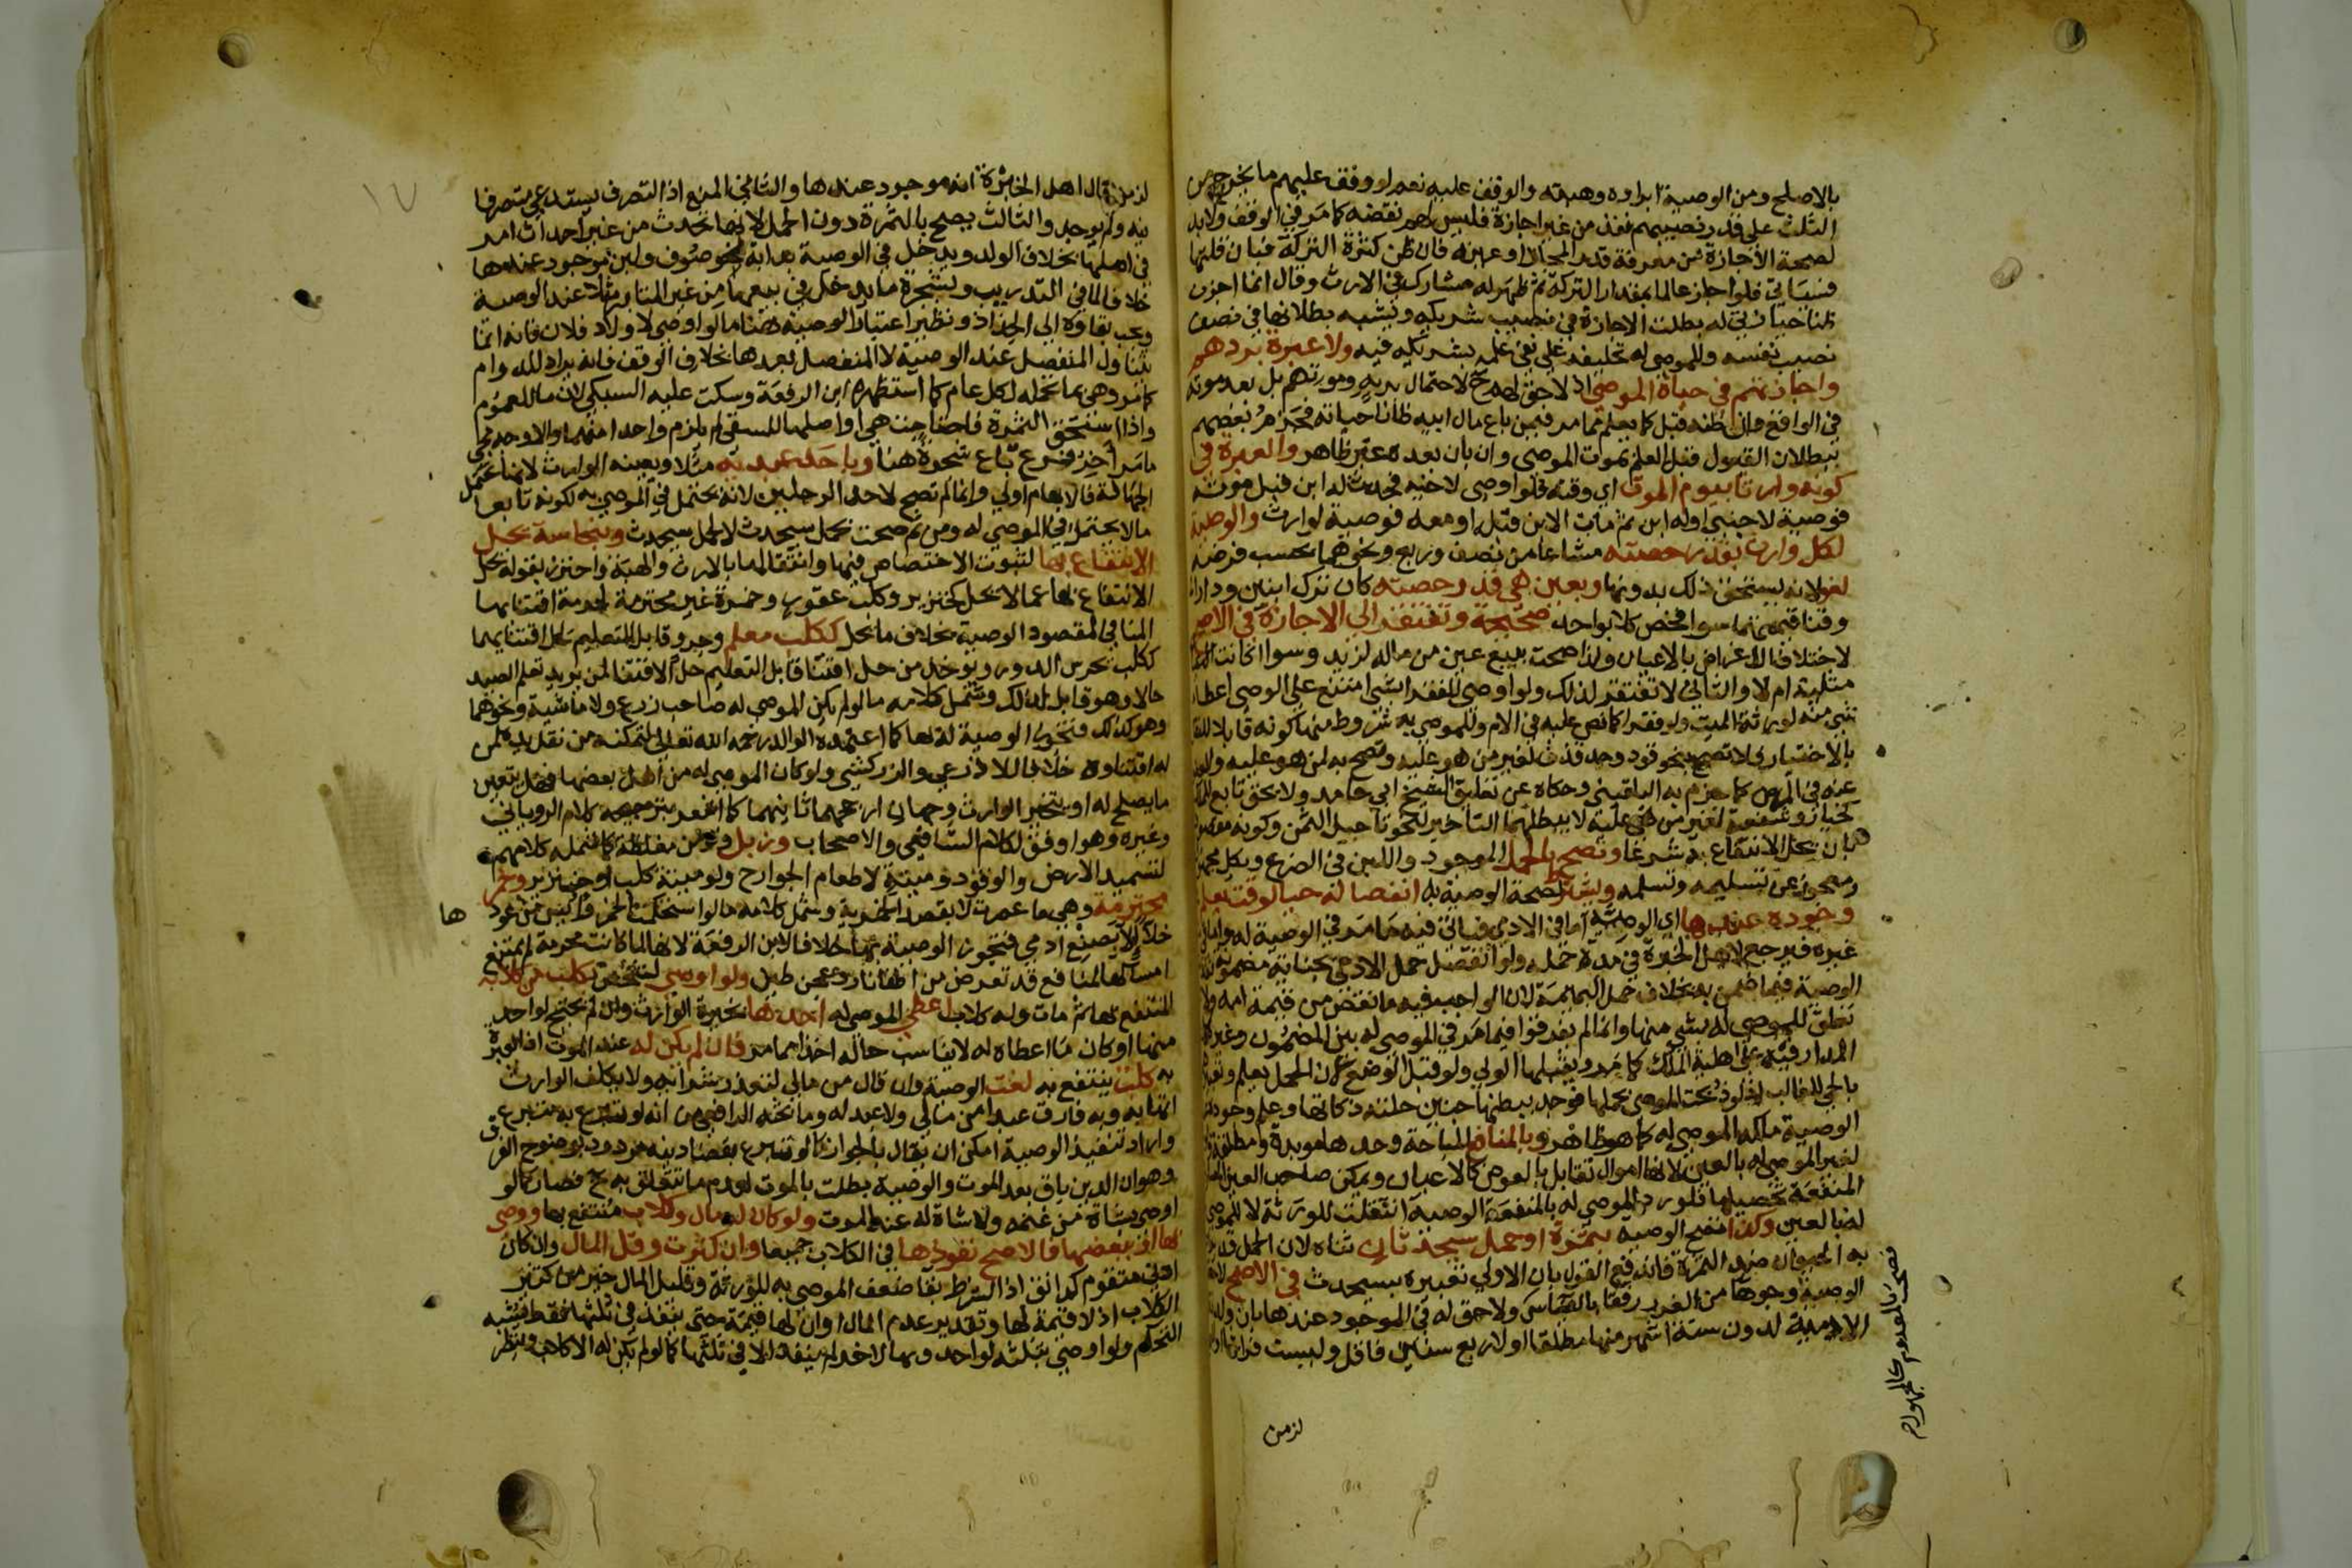 بالاصلح ومن الوصية ابراوه وهبته والوقف عليه نعم لو وقف عليهم ما يخرج من
الثلث على قدر نصيبهم نفذ من غير اجازة فليس لهم نقضه كما مر في الوقف ولا بد
لصحة الاجازة من معرفة قدر المجاز او عينه فان ظن كثرة التركة فبان قلتها
فسياتي فلو اجاز عالما بمقدار التركة ثم ظهر له مشارك في الارث وقال انما اجزت
ظنا حيازتي له بطلت الاجازة في نصيب شريكه ويشبه بطلانها في نصف
نصيب نفسه وللموصى له تحليفه على نفي علمه بشريكه فيه ولا عبرة بردهم
واجازتهم في حياة الموصي اذ لا حق لهم ح لاحتمال بريه وموتهم بل بعد موته
في الواقع وان ظنه قبل كما يعلم مما مر فيمن باع مال ابيه ظانا حياته فجزم بعضهم
ببطلان القبول قبل العلم بموت الموصي وان بان بعده غير ظاهر والعبرة في
كونه وارثا بيوم الموت اي وقته فلو اوصى لاخيه فحدث له ابن قبل موته
فوصية لاجنبي او له ابن ثم مات الابن قبله او معه فوصية لوارث والوصية
لكل وارث بقدر حصته مشاعا من نصف وربع ونحوهما بحسب فرضه
لغو لانه يستحق ذلك بدونها وبعين هي قدر حصته كان ترك ابنين ودارا
وقنا قيمتهما سوا فخص كلا بواحد صحيحة وتفتقر الى الاجازة في الاصح
لاختلاف الاغراض بالاعيان ولذا صحت ببيع عين من ماله لزيد وسوا اكانت
مثلية ام لا والثاني لا تفتقر لذلك ولو اوصى للفقرا بشي امتنع على الوصي اعطا
شي منه لورثة الميت ولو فقرا كما نص عليه في الام وللموصى به شروط منها كونه قابلا للنقل
بالاختيار فلا تصح بنحو قود وحد قذف لغير من هو عليه وتصح به لمن هو عليه
عنه في المرض كما جزم به البلقيني وحكاه عن تعليق الشيخ ابي حامد ولا بحق تابع للملك
كخيار وشفعة لغير من هي عليه لا يبطلها التاخير لنحو تاجيل الثمن وكونه مقصودا
بان يحل الانتفاع به شرعا وتصح بالحمل الموجود واللبن في الضرع وبكل مجهول
ومعجوز عن تسليمه وتسلمه ويشترط لصحة الوصية به انفصاله حيا لوقت يعلم
وجوده عندها اي الوصية اما في الادمي فياتي فيه ما مر في الوصية له واما في
غيره فيرجع لاهل الخبرة في مدة حمله ولو انفصل حمل الادمي بجناية مضمونة
الوصية فيما ضمن به بخلاف حمل البهيمة لان الواجب فيه ما نقص من قيمة امه ولا
تعلق للموصى له بشي منها وانما لم يفرقوا فيما مر في الموصى له بين المضمون وغيره
المدار فيه على اهلية الملك كما مر ويقبلها الولي ولو قبل الوضع لان الحمل يعلم
بالحي للغالب اذ لو ذبحت الموصى بحملها فوجد ببطنها جنين حلته ذكاتها وعلم وجوده
الوصية ملكه الموصى له كما هو ظاهر وبالمنافع المباحة وحدها موبدة ومطلقة
لغير الموصى له بالعين لانها اموال تقابل بالعوض كالاعيان ويمكن صاحب العين
المنفعة تحصيلها فلو رد الموصى له بالمنفعة الوصية انتقلت للورثة لا للموصى
له بالعين وكذا تصح الوصية بثمرة او حمل سيحدثان تناه لان الحمل
به الحيوان ضد الثمرة فاندفع القول بان الاولى تعبيره بسيحدث في الاصح لان
الوصية وجوها من الغرر رفقا بالناس ولا حق له في الموجود عندها بان ولدته
الادمية لدون ستة اشهر منها مطلقا او لاربع سنين فاقل وليست فراشا
فصحت بالمعدوم كالمجهول م
لزمن
لزمن قال اهل الخبرة انه موجود عندها والثاني المنع اذ التصرف يستدعي متصرفا
فيه ولم يوجد والثالث يصح بالثمرة دون الحمل لانها تحدث من غير احداث امر
في اصلها بخلاف الولد ويدخل في الوصية بدابة نحو صوف ولبن موجود عندها
خلافا لما في التدريب وبشجرة ما يدخل في بيعها من غير المتابر مثلا عند الوصية
ويجب بقاوه الى الجذاذ ونظير اعتبار الوصية هنا ما لو اوصى لاولاد فلان فانه انما
يتناول المنفصل عند الوصية لا المنفصل بعدها بخلاف الوقف فانه يراد للدوام
كما مر وهي بما تحمله لكل عام كما استظهره ابن الرفعة وسكت عليه السبكي لان ما للعموم
واذا استحق الثمرة فاحتاجت هي او اصلها للسقي لم يلزم واحدا منهما والاوجه مجي
ما مر اخر فرع باع شجرة هنا وباحد عبديه مثلا ويعينه الوارث لانها تحتمل
الجهالة فالابهام اولى وانما لم تصح لاحد الرجلين لانه يحتمل في الموصى به لكونه تابعا
ما لا يحتمل في الموصى له ومن ثم صحت بحمل سيحدث لا لحمل سيحدث وبنجاسة يحل
الانتفاع بها لثبوت الاختصاص فيها وانتقالها بالارث والهبة واحترز بقوله يحل
الانتفاع بها عما لا يحل كخنزير وكلب عقور وخمرة غير محترمة لحرمة اقتنايها
المنافي لمقصود الوصية بخلاف ما يحل ككلب معلم وجرو قابل للتعليم لحل اقتنايهما
ككلب يحرس الدور ويوخذ من حل اقتنا قابل التعليم حل الاقتنا لمن يريد تعلم الصيد
حالا وهو قابل لذلك وشمل كلامه ما لو لم يكن الموصى له صاحب زرع ولا ماشية ونحوهما
وهو كذلك فتجوز الوصية له بها كما اعتمده الوالد رحمه الله تعالى لتمكنه من نقل يده لمن
له اقتناوه خلافا للاذرعي والزركشي ولو كان الموصى له من اهل بعضها فهل يتعين
ما يصلح له او يتخير الوارث وجهان ارجحهما ثانيهما كما افهم ترجيحه كلام الروياني
وغيره وهو اوفق لكلام الشافعي والاصحاب وزبل ولو من مغلظة كما شمله كلامهم
لتسميد الارض والوقود وميتة لاطعام الجوارح ولو ميتة كلب او خنزير وخمر
محترمة وهي ما عصرت لا بقصد الخمرية وشمل كلامه ما لو استحكمت الخمر وايس من عود
ها
خلا الا بصنع ادمي فتجوز الوصية بها خلافا لابن الرفعة لانها لما كانت محترمة لم يمتنع
امساكها لمنافع قد تعرض من اطفا نار وعجن طين ولو اوصى لشخص بكلب من كلابه
المنتفع بها ثم مات وله كلاب اعطي الموصى له احدها بخيرة الوارث وان لم يحتج لواحد
منها او كان ما اعطاه له لا يناسب حاله اخذا مما مر فان لم يكن له عند الموت اذ العبرة
به كلب ينتفع به لغت الوصية وان قال من مالي لتعذر شرائه ولا يكلف الوارث
اتهابه وبه فارق عبدا من مالي ولا عبد له وما بحثه الرافعي من انه لو تبرع به متبرع
واراد تنفيذ الوصية امكن ان يقال بالجواز كما لو تبرع بقضا دينه مردود بوضوح الفرق
وهو ان الدين باق بعد الموت والوصية بطلت بالموت لعدم ما تتعلق به ح فصار كما لو
اوصى بشاة من غنمه ولا شاة له عند الموت ولو كان له مال وكلاب منتفع بها ووصى
بها او ببعضها فالاصح نفوذها في الكلاب جميعها وان كثرت وقل المال وان كان
ادنى متقوم كدانق اذ الشرط بقا ضعف الموصى به للورثة وقليل المال خير من كثير
الكلاب اذ لا قيمة لها وتقدير عدم المال او ان لها قيمة حتى ينفذ في ثلثها فقط فيشبه
التحكم ولو اوصى بثلثه لواحد وبها لاخر لم ينفذ الا في ثلثها كما لو لم يكن له الا كلاب وينظر